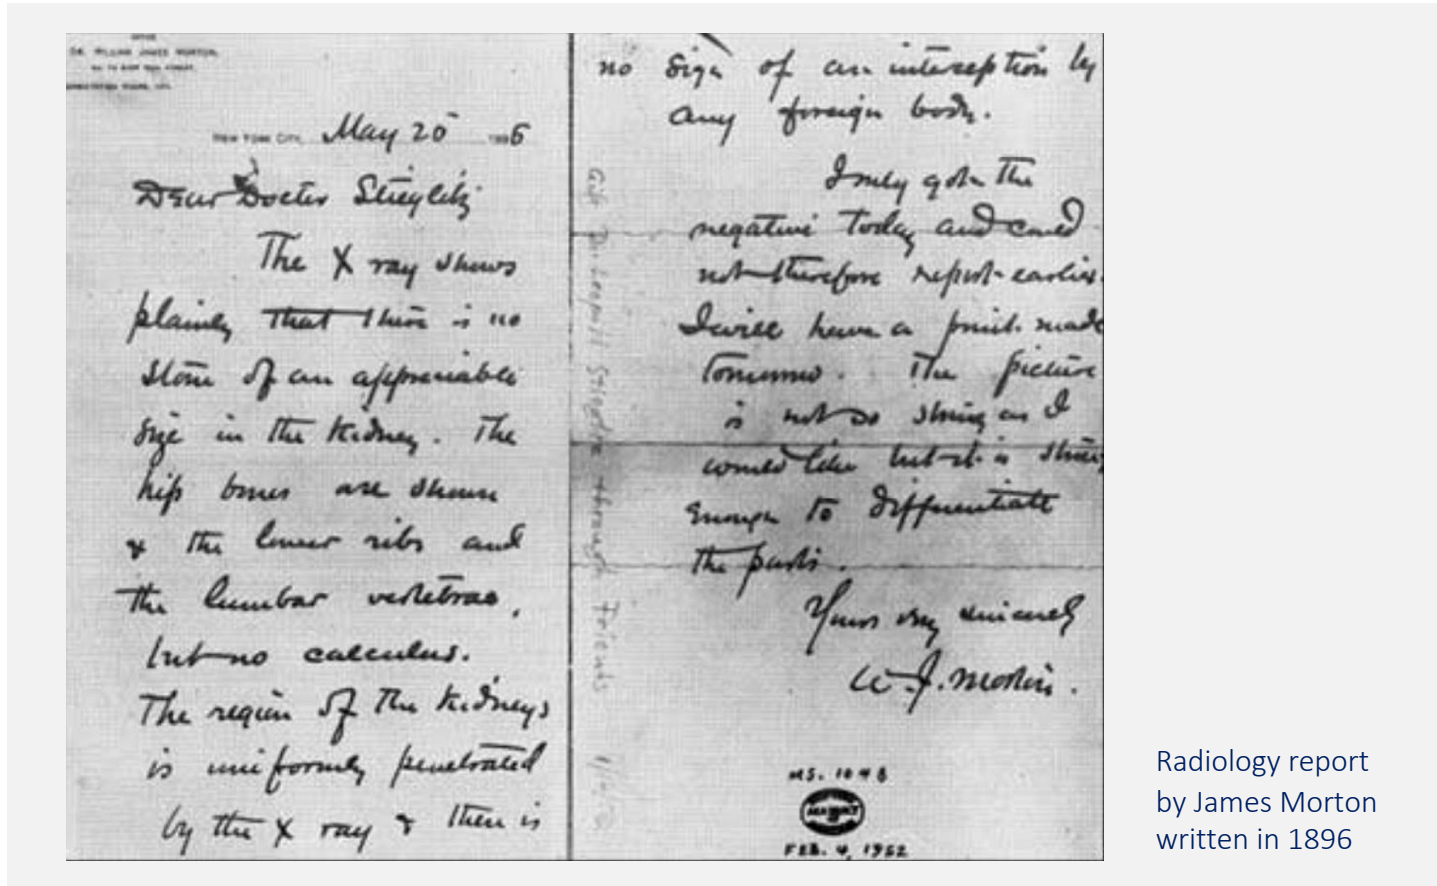 OFFICE
DR. WILLIAM JAMES MORTON,
NEW YORK CITY, May 25 1896
Dear Doctor Stieglitz
The X ray shows
plainly that there is no
stone of an appreciable
size in the kidney. The
hip bones are shown
& the lower ribs and
the lumbar vertebrae,
but no calculus.
The region of the kidneys
is uniformly penetrated
by the X ray & there is
no sign of an interception by
any foreign body.
I only got the
negative today and could
not therefore report earlier.
I will have a print made
tomorrow. The picture
is not so strong as I
would like but it is strong
enough to differentiate
the parts.
Yours very sincerely
W. J. Morton.
MS. 1048
FEB. 4, 1952
through Friends
Radiology report
by James Morton
written in 1896